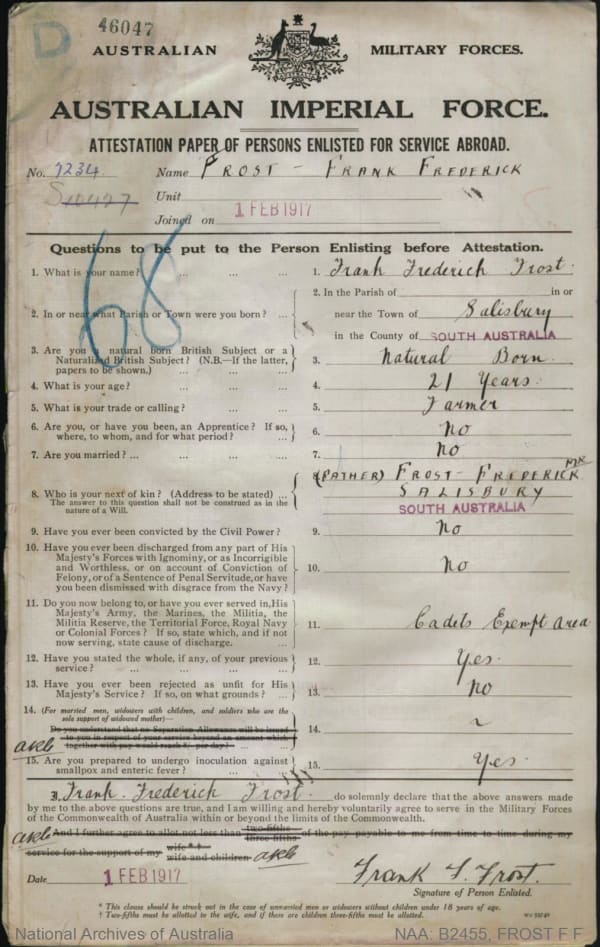 D 46047
AUSTRALIAN MILITARY FORCES.
AUSTRALIAN IMPERIAL FORCE.
ATTESTATION PAPER OF PERSONS ENLISTED FOR SERVICE ABROAD.
No. 7234 Name FROST - FRANK FREDERICK
Unit
Joined on 1 FEB 1917
68
Questions to be put to the Person Enlisting before Attestation.
1. What is your name? ... ... ... 1. Frank Frederich Frost.
2. In or near what Parish or Town were you born? ... 2. In the Parish of in or
near the Town of Salisbury
in the County of SOUTH AUSTRALIA
3. Are you a natural born British Subject or a
Naturalized British Subject? (N.B.—If the latter,
papers to be shown.) ... ... 3. Natural Born.
4. What is your age? ... ... ... 4. 21 Years.
5. What is your trade or calling? ... ... 5. Farmer
6. Are you, or have you been, an Apprentice? If so,
where, to whom, and for what period? ... 6. No
7. Are you married? ... ... ... ... 7. No
8. Who is your next of kin? (Address to be stated) ...
The answer to this question shall not be construed as in the
nature of a Will. 8. (FATHER) FROST - FREDERICK MR
SALISBURY
SOUTH AUSTRALIA
9. Have you ever been convicted by the Civil Power? 9. No
10. Have you ever been discharged from any part of His
Majesty's Forces with Ignominy, or as Incorrigible
and Worthless, or on account of Conviction of
Felony, or of a Sentence of Penal Servitude, or have
you been dismissed with disgrace from the Navy? 10. No
11. Do you now belong to, or have you ever served in, His
Majesty's Army, the Marines, the Militia, the
Militia Reserve, the Territorial Force, Royal Navy
or Colonial Forces? If so, state which, and if not
now serving, state cause of discharge. ... 11. Cadets Exempt Area
12. Have you stated the whole, if any, of your previous
service? ... ... ... ... 12. Yes.
13. Have you ever been rejected as unfit for His
Majesty's Service? If so, on what grounds? ... 13. No
14. (For married men, widowers with children, and soldiers who are the
sole support of widowed mother)—
Do you understand that no Separation Allowance will be issued
to you in respect of your service beyond an amount which
together with pay would reach 8/- per day? ... 14. ~
15. Are you prepared to undergo inoculation against
smallpox and enteric fever? ... ... 15. Yes.
I, Frank Frederich Frost. do solemnly declare that the above answers made
by me to the above questions are true, and I am willing and hereby voluntarily agree to serve in the Military Forces
of the Commonwealth of Australia within or beyond the limits of the Commonwealth.
And I further agree to allot not less than two-fifths three-fifths of the pay payable to me from time to time during my
service for the support of my wife wife and children
Date 1 FEB 1917 Frank F. Frost.
Signature of Person Enlisted.
* This clause should be struck out in the case of unmarried men or widowers without children under 18 years of age.
† Two-fifths must be allotted to the wife, and if there are children three-fifths must be allotted.
National Archives of Australia NAA: B2455, FROST F F